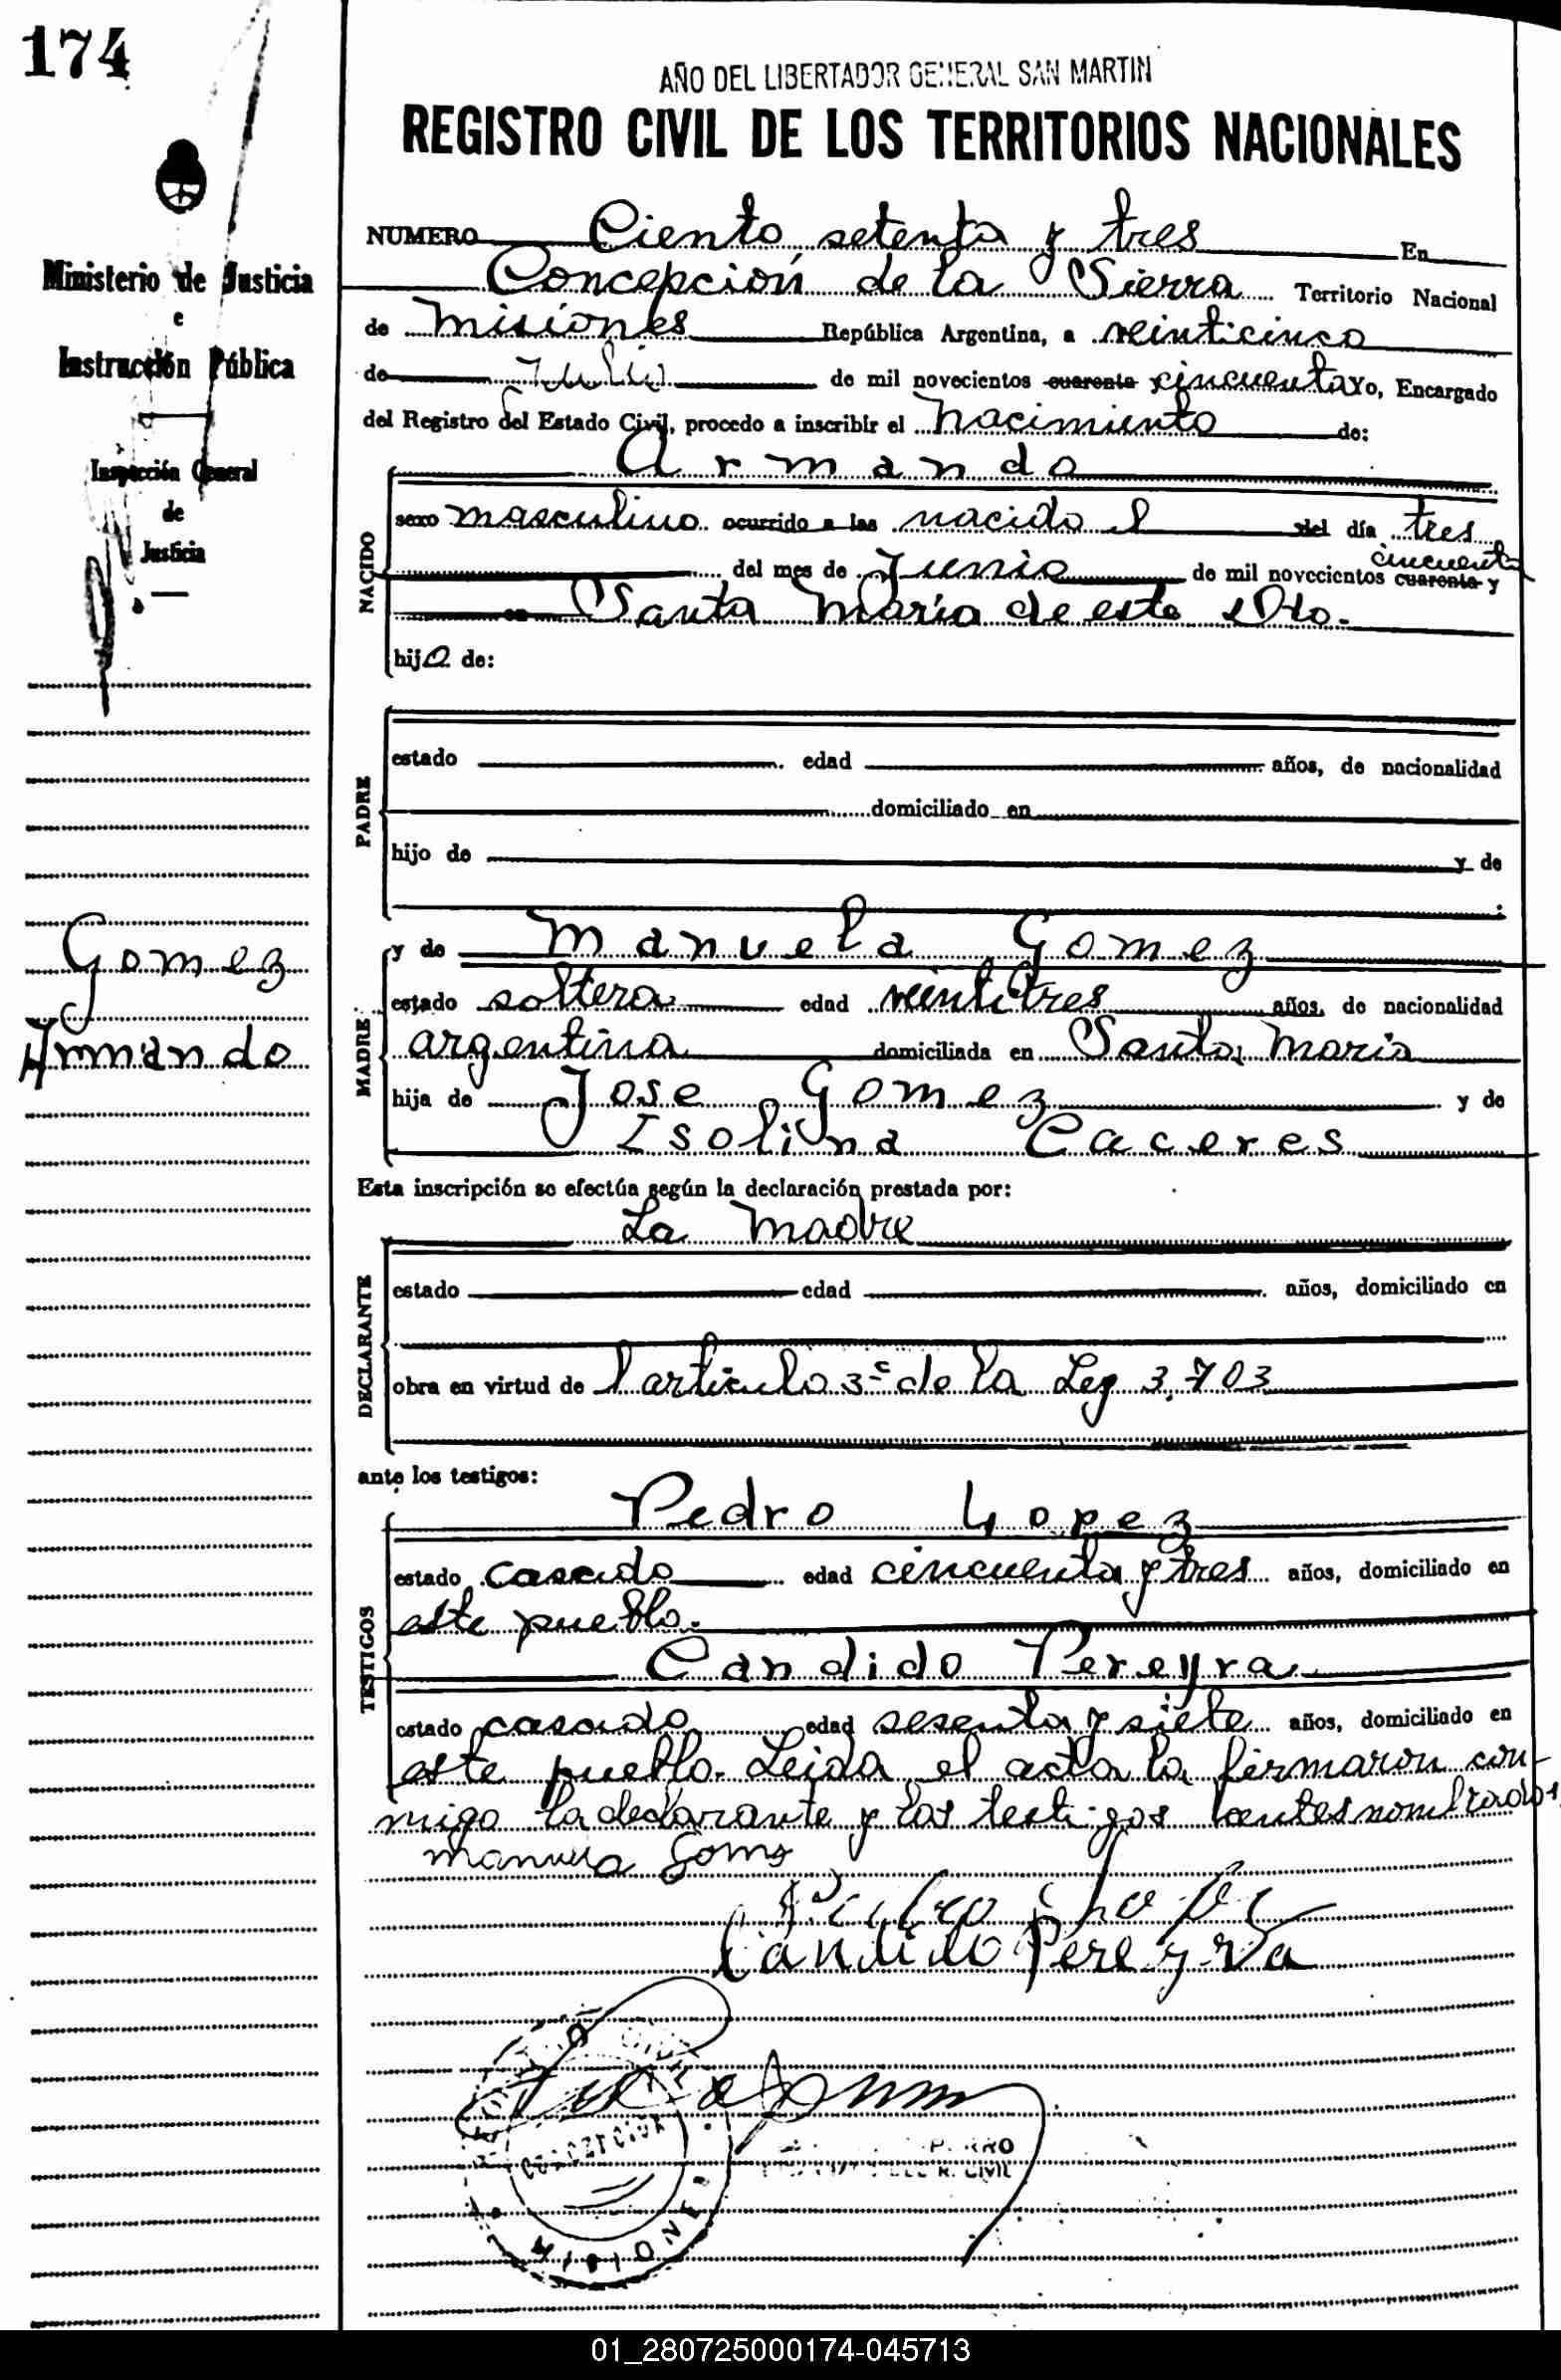 174
AÑO DEL LIBERTADOR GENERAL SAN MARTIN
REGISTRO CIVIL DE LOS TERRITORIOS NACIONALES
Ministerio de Justicia
e
Instrucción Pública
Inspección General
de
Justicia
NUMERO Ciento setenta y tres En
Concepción de la Sierra Territorio Nacional
de Misiones República Argentina, a veinticinco
de Julio de mil novecientos cuarenta y cincuenta Yo, Encargado
del Registro del Estado Civil, procedo a inscribir el nacimiento de:
NACIDO
Armando
sexo masculino ocurrido a las nacido el del día tres
del mes de Junio de mil novecientos cuarenta y cincuenta
en Santa María de este Dto.
hijo de:
PADRE
estado edad años, de nacionalidad
domiciliado en
hijo de y de
Gomez
Armando
MADRE
y de Manuela Gomez
estado soltera edad veintitres años, de nacionalidad
argentina domiciliada en Santa Maria
hija de Jose Gomez y de
Isolina Caceres
Esta inscripción se efectúa según la declaración prestada por:
DECLARANTE
La Madre
estado edad años, domiciliado en
obra en virtud de l articulo 3º de la Ley 3.703
ante los testigos:
TESTIGOS
Pedro Lopez
estado casado edad cincuenta y tres años, domiciliado en
este pueblo.
Candido Pereyra
estado casado edad sesenta y siete años, domiciliado en
este pueblo. Leida el acta la firmaron con-
migo la declarante y los testigos antes nombrados
manuela Gomz
Pedro Lopez
Candido Pereyra
CONCEPCION
MISIONES
R. CIVIL
01_280725000174-045713